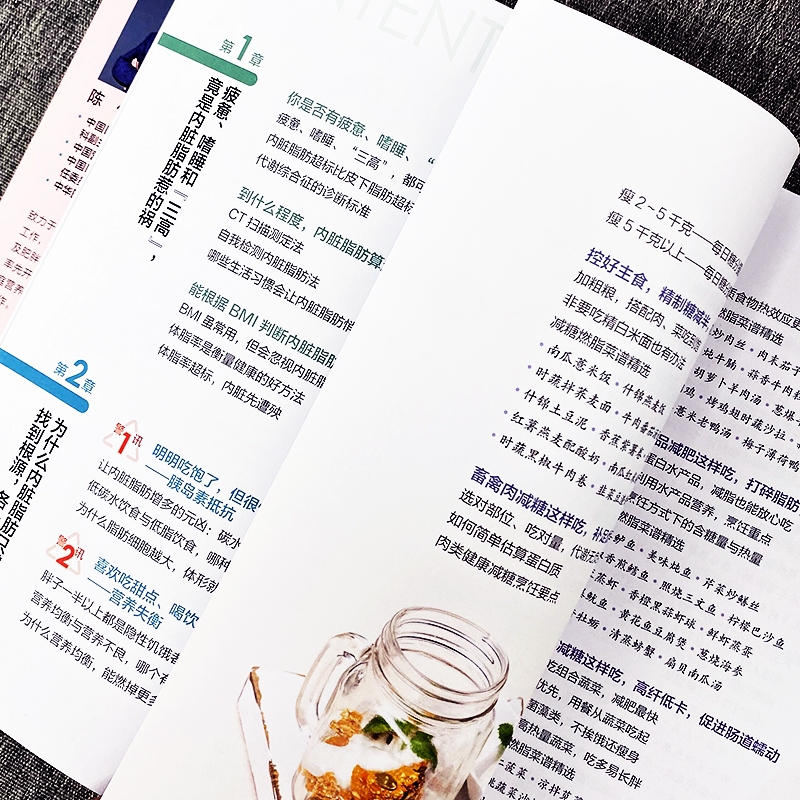 CONTENT
陈
中国
科副
中国
中国
任委
中华
致力于
工作,
及肥胖
率先开
庭营养
作。
第1章
疲惫、嗜睡和『三高』,
竟是内脏脂肪惹的祸
你是否有疲惫、嗜睡、
疲惫、嗜睡、“三高”,都可
内脏脂肪超标比皮下脂肪超标
代谢综合征的诊断标准
到什么程度,内脏脂肪算
CT 扫描测定法
自我检测内脏脂肪法
哪些生活习惯会让内脏脂肪悄
能根据 BMI 判断内脏脂肪
BMI 虽常用,但会忽视内脏脂肪
体脂率是衡量健康的好方法
体脂率超标,内脏先遭殃
第2章
为什么内脏脂肪
找到根源,各
警讯1
明明吃饱了,但很
——胰岛素抵抗
让内脏脂肪增多的元凶:碳水
低碳水饮食与低脂饮食,哪种
为什么脂肪细胞越大,体形就
警讯2
喜欢吃甜点、喝饮
——营养失衡
胖子一半以上都是隐性饥饿者
营养均衡与营养不良,哪个有
为什么营养均衡,能燃掉更多
瘦 2~5 千克——每日糖
瘦 5 千克以上——每日糖
控好主食,精制糖减半
加粗粮,搭配肉、菜吃
非要吃精白米面也有办法
减糖燃脂菜谱精选
• 南瓜薏米饭 • 什锦燕麦饭
• 时蔬拌荞麦面 • 牛肉番茄
• 什锦土豆泥 • 香蕉紫薯
• 红薯燕麦配酸奶 • 南瓜
• 时蔬黑椒牛肉卷 • 韭菜
畜禽肉减糖这样吃,补
选对部位、吃对量,代谢
如何简单估算蛋白质
肉类健康减糖烹饪要点
食物热效应更
燃脂菜谱精选
炒肉丝 • 肉末茄子
炖牛腩 • 蒜香牛肉粒
胡萝卜羊肉汤 • 葱爆
鸡 • 烤鸡翅时蔬沙拉
薏米老鸭汤 • 梅子薄荷鸭
品减肥这样吃,打碎脂肪
蛋白水产品,减脂也能放心吃
利用水产品营养,烹饪重点
烹饪方式下的含糖量与热量
燃脂菜谱精选
鲈鱼 • 美味炖鱼 • 芹菜炒鳝丝
香煎鳕鱼 • 照烧三文鱼 • 柠檬巴沙鱼
蒸虾 • 香橙黑蒜虾球 • 鲜虾蒸蛋
鱿鱼 • 黄花鱼豆腐煲 • 葱烧海参
牡蛎 • 清蒸螃蟹 • 扇贝南瓜汤
减糖这样吃,高纤低卡,促进肠道蠕动
吃组合蔬菜,减肥最快
优先,用餐从蔬菜吃起
菌藻类,不挨饿还瘦身
高热量蔬菜,吃多易长胖
燃脂菜谱精选
菠菜 • 凉拌
蔬菜沙